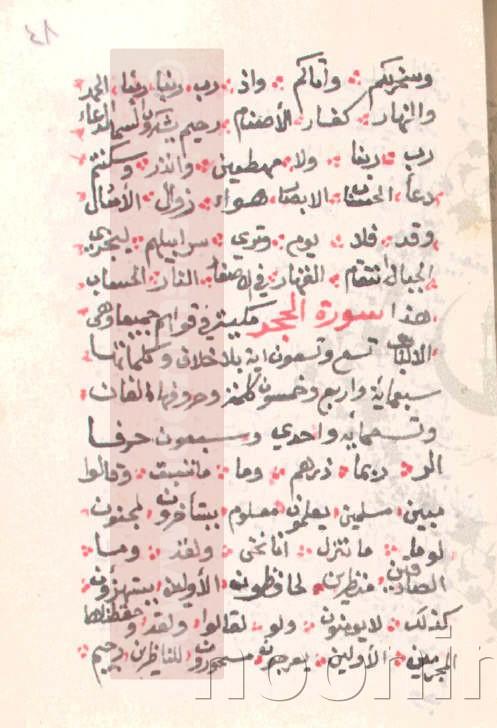 ٤٨
وسخر لكم وآتاكم واذ رب ربنا ربنا الحمد
والنهار كفار الأصنام رحيم يشكرون السماء الدعاء
رب ربنا ولا مهطعين وانذر وسكنتم
دعاء الحساب الابصار هواء زوال الأمثال
وقد فلا يوم وترى سرابيلهم ليجزي
الجبال انتقام القهار في الاصفاد النار الحساب
هذا سورة الحجر مكية في قولهم جميعا وهي
الالباب تسع وتسعون اية بلا خلاف وكلماتها
ستمائة واربع وخمسون كلمة وحروفها الفان
وتسمايه واحدي وسبعون حرفا
الر ربما ذرهم وما ما تسبق وقالوا
مبين مسلمين يعلمون معلوم يستأخرون لمجنون
لوما ما ننزل انا نحن ولقد وما
الصادقين منظرين لحافظون الأولين يستهزؤن
كذلك لا يومنون ولو لقالوا ولقد وحفظناها
المجرمين الأولين يعرجون مسحورون للناظرين رجيم
noorlib